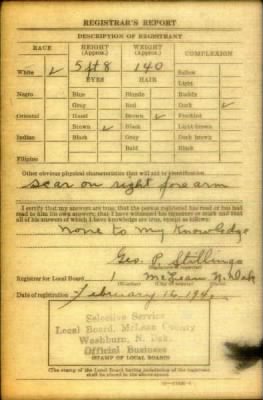 REGISTRAR'S REPORT
DESCRIPTION OF REGISTRANT
RACE HEIGHT (Approx.) WEIGHT (Approx.) COMPLEXION
White ✓ 5 ft 8 140 Sallow
EYES HAIR Light
Negro Blue Blonde Ruddy
Gray Red Dark ✓
Oriental Hazel Brown ✓ Freckled
Brown ✓ Black Light brown
Indian Black Gray Dark brown
Bald Black
Filipino
Other obvious physical characteristics that will aid in identification
Scar on right forearm
I certify that my answers are true; that the person registered has read or has had
read to him his own answers; that I have witnessed his signature or mark and that
all of his answers of which I have knowledge are true, except as follows:
None to my Knowledge
Geo. P. Stillings
Registrar for Local Board 1 McLean N. Dak
Date of registration February 16 194
Selective Service
Local Board, McLean County
Washburn, N. Dak.
Official Business
(STAMP OF LOCAL BOARD)
(The stamp of the Local Board having jurisdiction of the registrant
shall be placed in the above space)